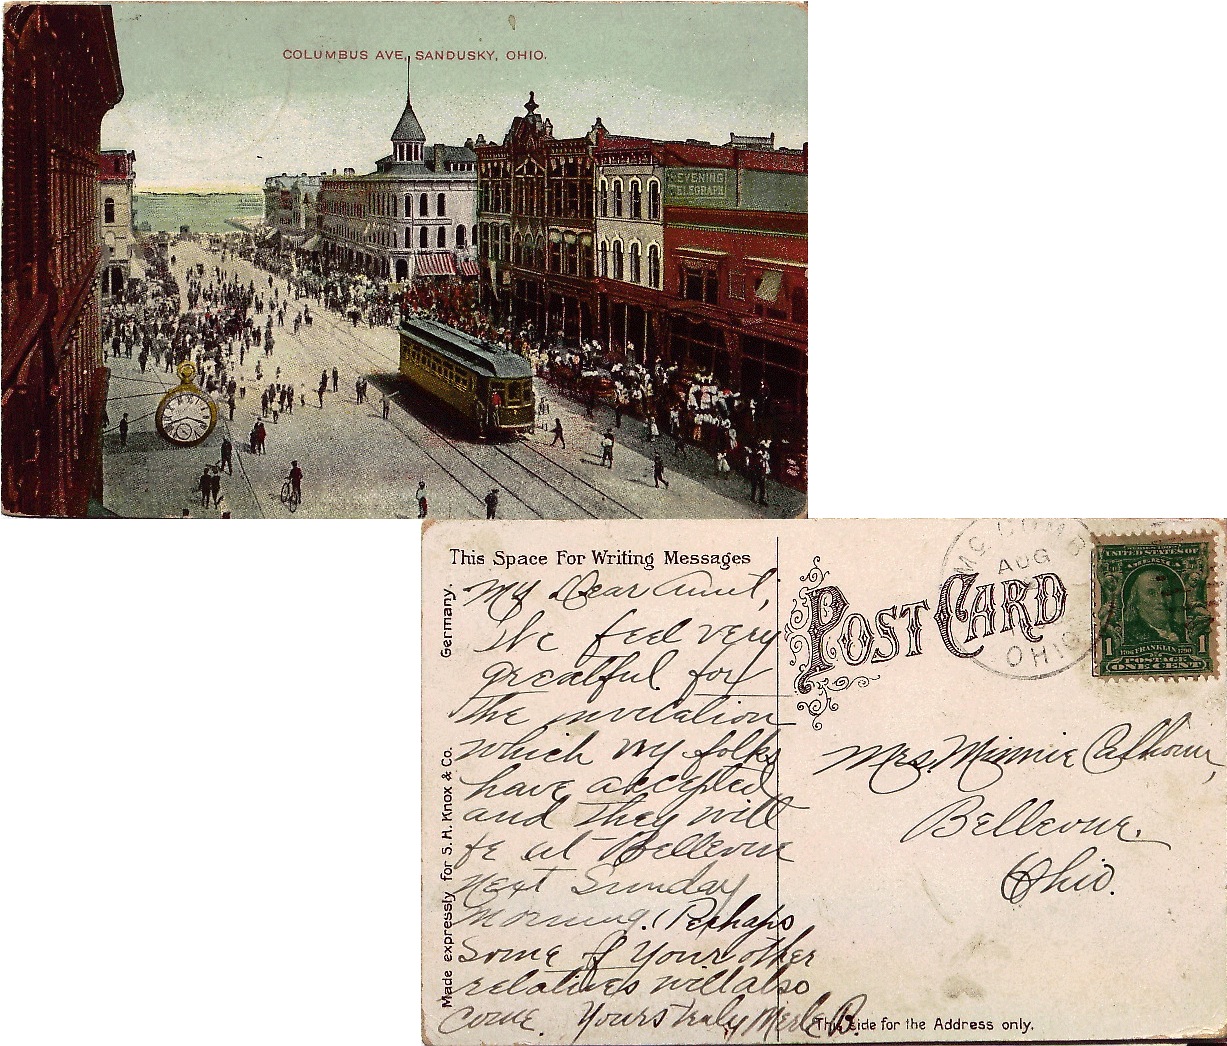 COLUMBUS AVE, SANDUSKY, OHIO.
EVENING
TELEGRAPH
This Space For Writing Messages
My Dear Aunt,
We feel very
greatful for
the invitation
which my folks
have accepted
and they will
be at Bellevue
next Sunday
morning. (Perhaps
some of your other
relatives will also
come. Yours truly Merle B.
Germany.
Made expressly for S. H. Knox & Co.
POST CARD
AUG
OHIO
UNITED STATES OF
AMERICA
1 FRANKLIN 1
POSTAGE
ONE CENT
Mrs. Minnie Calhoun,
Bellevue,
Ohio.
This side for the Address only.